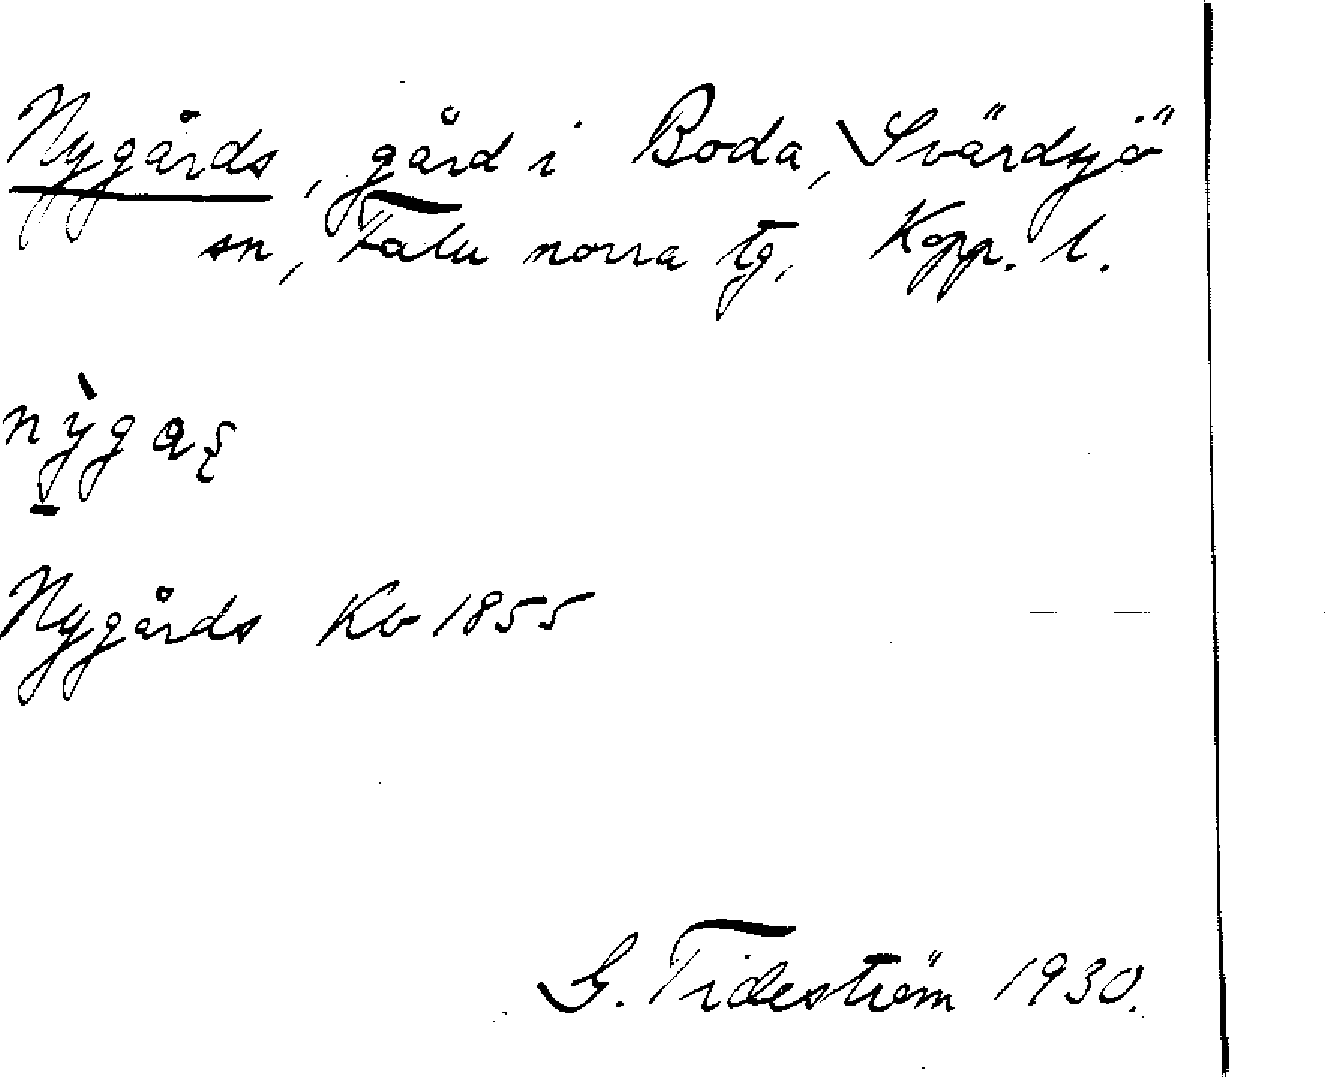 Nygårds, gård i Boda, Svärdsjö
sn, Falu norra tg, Kopp. l.
Nygårds Kb 1855
G. Tideström 1930.